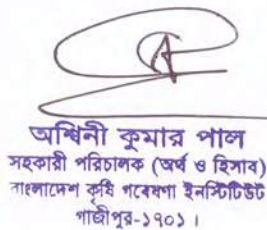 অশ্বিনী কুমার পাল
সহকারী পরিচালক (অর্থ ও হিসাব)
বাংলাদেশ কৃষি গবেষণা ইনস্টিটিউট
গাজীপুর-১৭০১।